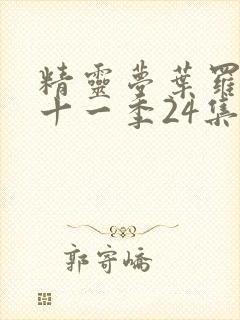 精靈夢葉羅
十一季24集
郭寄嶠